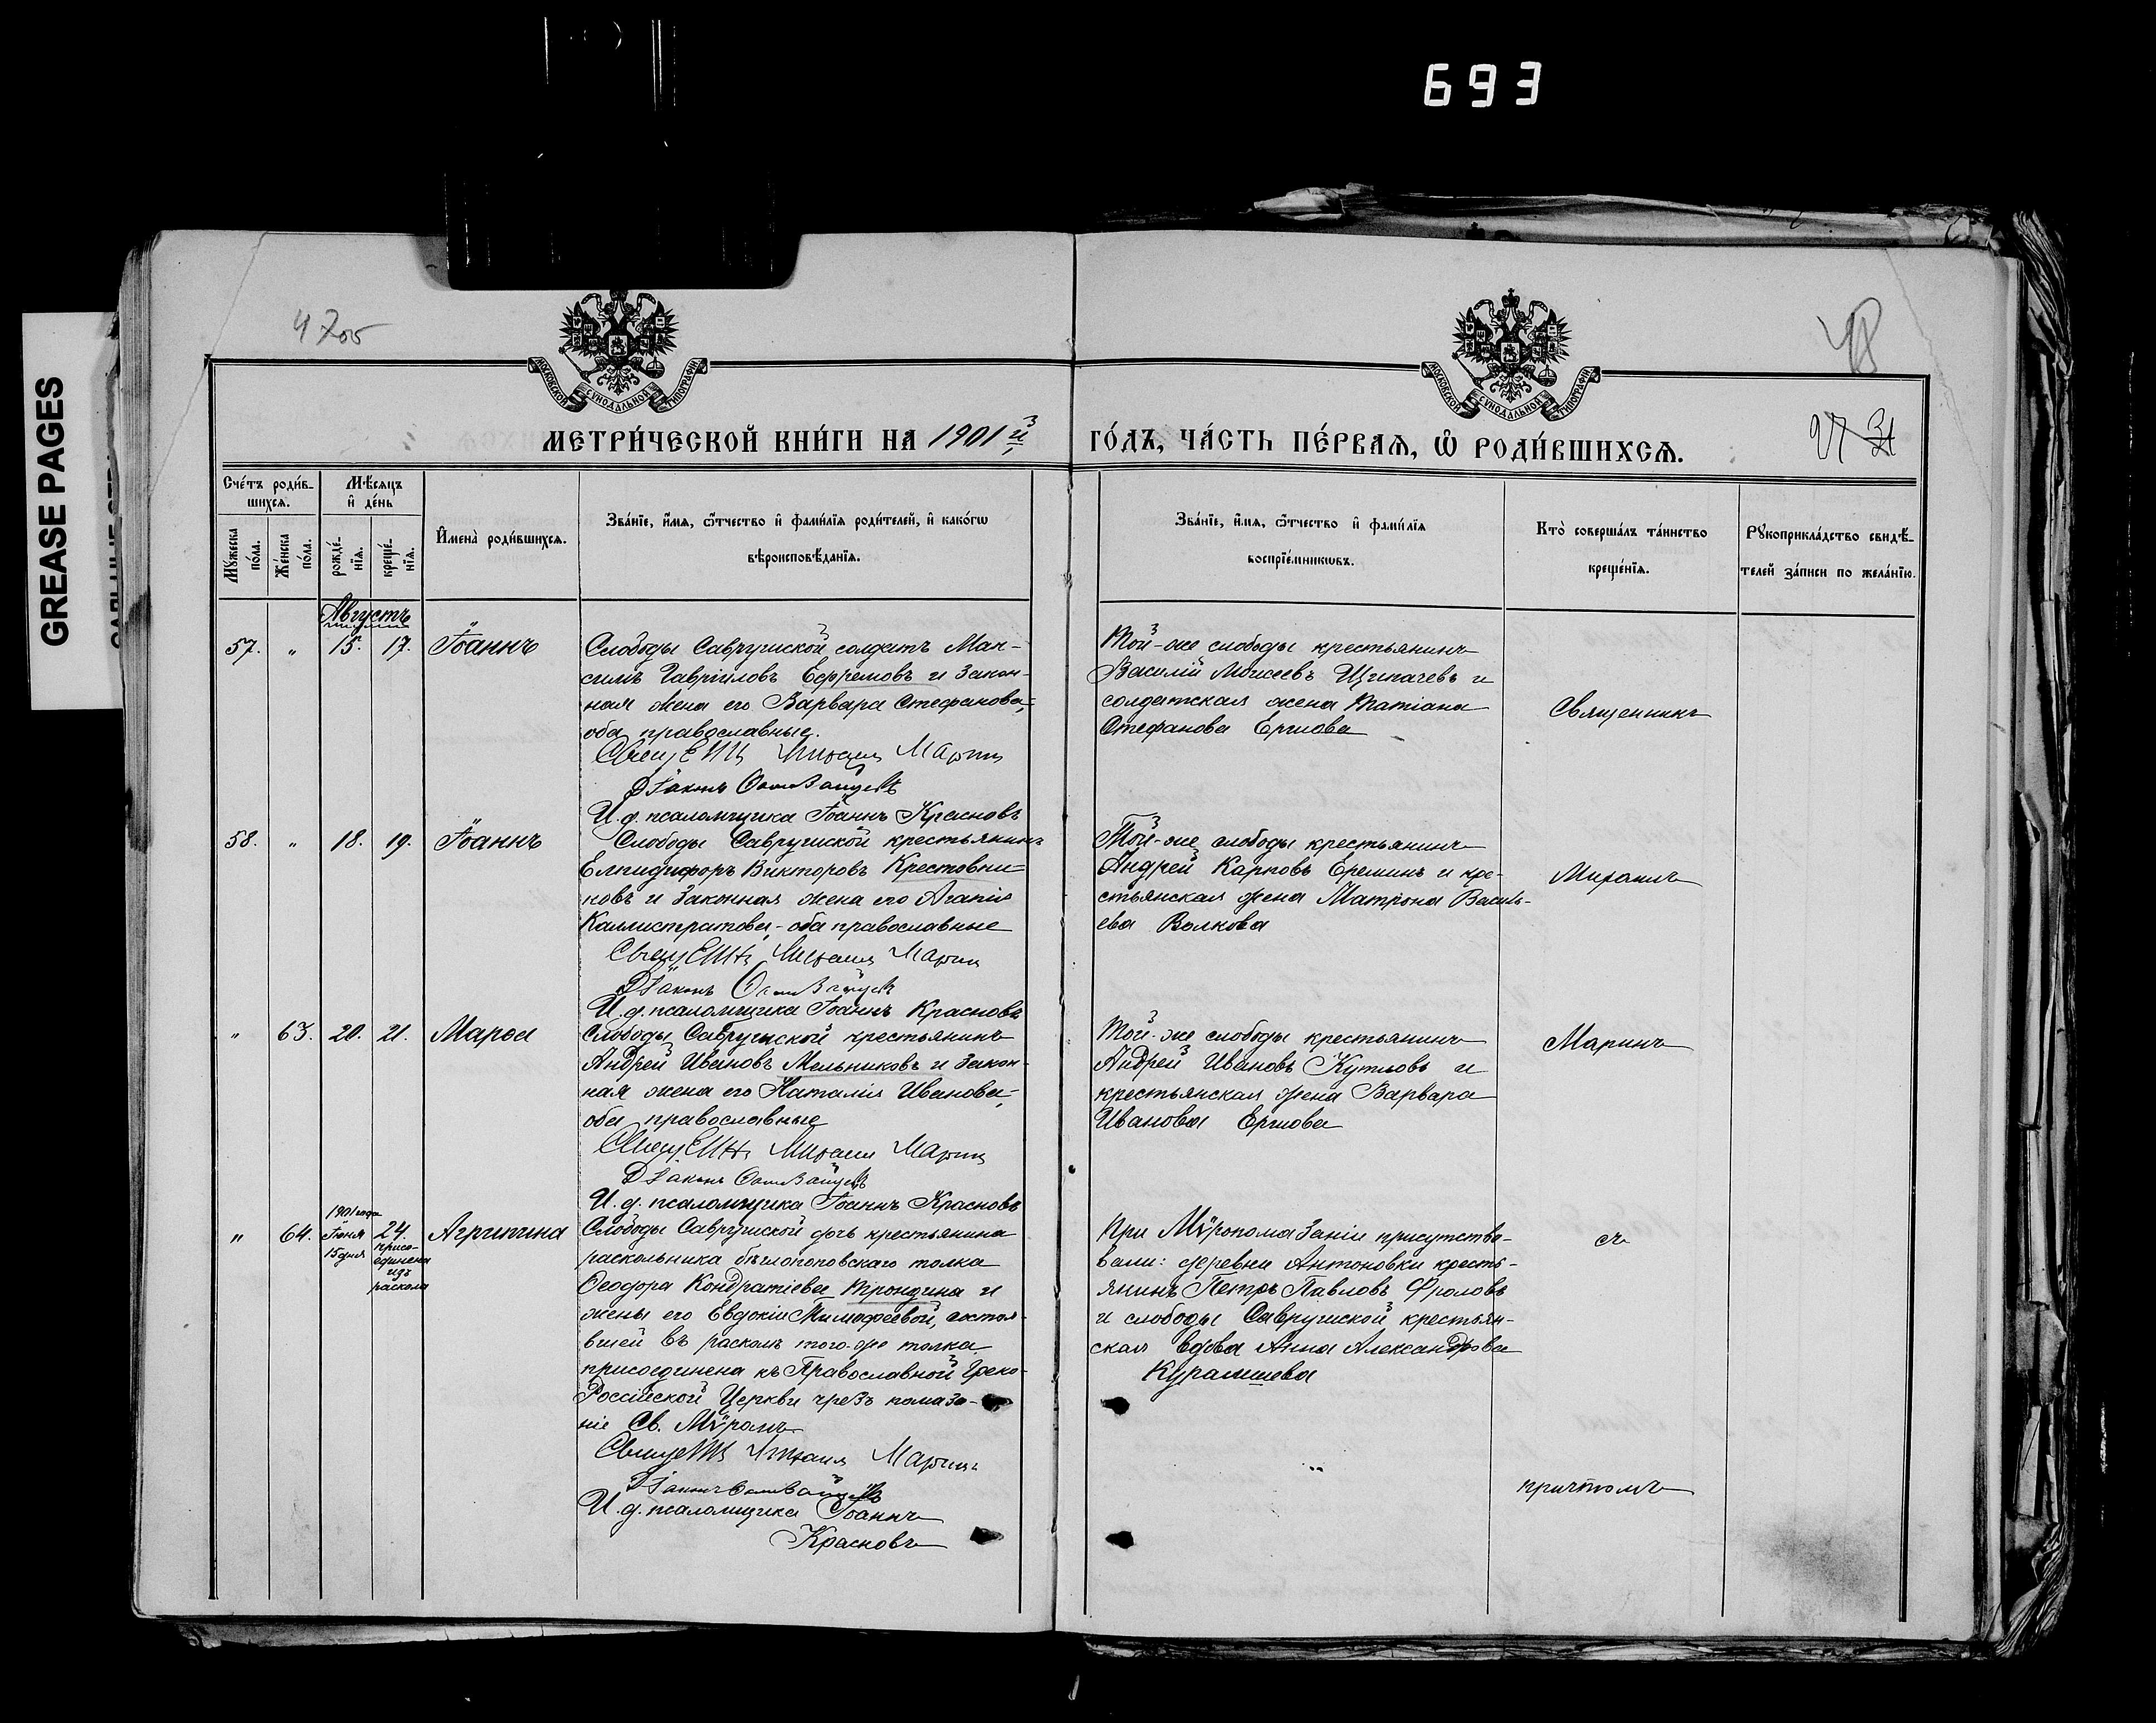 693
GREASE PAGES
4 7об
48
МОСКОВСКОЙ СѴНОДАЛЬНОЙ ТИПОГРАФІИ
МОСКОВСКОЙ СѴНОДАЛЬНОЙ ТИПОГРАФІИ
МЕТРИ́ЧЕСКОЙ КНИ́ГИ НА 1901й
ГО́ДЪ, ЧА́СТЬ ПЕ́РВАѦ, Ѡ РОДИ́ВШИХСѦ.
Сче́тъ роди́в-
шихсѧ.
Мѣ́сѧцъ
и҆ де́нь
Мꙋ́жеска
по́ла.
Же́нска
по́ла.
рожде́-
нїѧ.
креще́-
нїѧ.
И҆мена̀ роди́вшихсѧ.
Зва́нїе, и҆́мѧ, ѻ҆́тчество и҆ фами́лїѧ роди́телей, и҆ како́гѡ
вѣроисповѣ́данїѧ.
Зва́нїе, и҆́мѧ, ѻ҆́тчество и҆ фами́лїѧ
воспрїе́мникѡвъ.
Кто̀ соверша́лъ та́инство
креще́нїѧ.
Рꙋкоприкла́дство свидѣ́-
телей за́писи по жела́нїю.
Августъ
57. " 15. 17. Іоаннъ
Слободы Саврушской солдатъ Мак-
симъ Гавріиловъ Ефремовъ и закон-
ная жена его Варвара Стефанова,-
оба православные.
Священ. Михаилъ Маринъ
Діаконъ
И. д. псаломщика Іоаннъ Красновъ
Той-же слободы крестьянинъ
Василій Моисеевъ Щипачевъ и
солдатская жена Татіана
Стефанова Ершова
Священникъ
58. " 18. 19. Іоаннъ
Слободы Саврушской крестьянинъ
Елпидифоръ Викторовъ Крестовни-
ковъ и законная жена его Агапія
Каллистратова,- оба православные
Священ. Михаилъ Маринъ
Діаконъ
И. д. псаломщика Іоаннъ Красновъ
Той-же слободы крестьянинъ
Андрей Карповъ Ереминъ и кре-
стьянская жена Матрона Василь-
ева Волкова
Михаилъ
" 63. 20. 21. Марѳа
Слободы Саврушской крестьянинъ
Андрей Ивановъ Мельниковъ и закон-
ная жена его Наталія Иванова,-
оба православные
Священ. Михаилъ Маринъ
Діаконъ
И. д. псаломщика Іоаннъ Красновъ
Той-же слободы крестьянинъ
Андрей Ивановъ Кутловъ и
крестьянская жена Варвара
Иванова Ершова
Маринъ
1901 года
Іюня
15 дня
" 64. 24. Агрипина
присо-
единена
изъ
раскола
Слободы Саврушской дочь крестьянина
раскольника бѣглопоповскаго толка
Ѳеодора Кондратіева Трондина и
жены его Евдокіи Тимофеевой, состоя-
вшей въ расколѣ того-же толка
присоединена къ Православной Греко-
Россійской Церкви чрезъ помаза-
ніе Св. Мѵромъ.
Священ. Михаилъ Маринъ
Діаконъ
И. д. псаломщика Іоаннъ
Красновъ
При Мѵропомазаніи присутство-
вали: деревни Антоновки кресть-
янинъ Петръ Павловъ Фроловъ
и слободы Савружской крестьян-
ская вдова Анна Александрова
Курамшева
съ
причтомъ